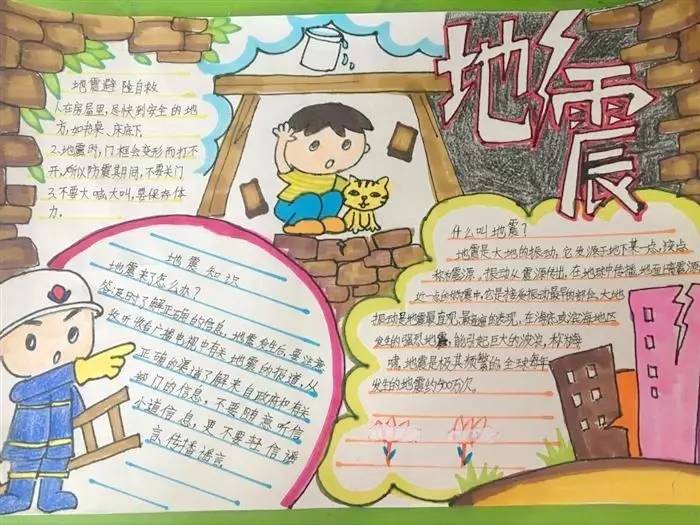 地震
地震避险自救
1.在房屋里,尽快到安全的地
方,如书桌、床底下
2.地震时,门框会变形而打不
开,所以防震其期间,不要关门
3.不要大喊大叫,要保存体
力。
什么叫地震?
地震是大地的振动,它发源于地下某一点,该点
称为震源,振动从震源传出,在地球中传播,地面离震源
近一点的称震中,它是接受振动最早的部位,大地
振动是地震最直观、最普遍的表现,在海底或滨海地区
发生的强烈地震,能引起巨大的波浪,称为海
啸,地震是极其频繁的,全球每年
发生的地震约500万次。
地震知识
地震来了怎么办?
答:及时了解正确的信息,地震发生后,要注意
收听收看广播电视中有关地震的报道,从
正确的渠道了解来自政府和有关
部门的信息,不要随意听信
小道信息,更不要轻信谣
言,传播谣言